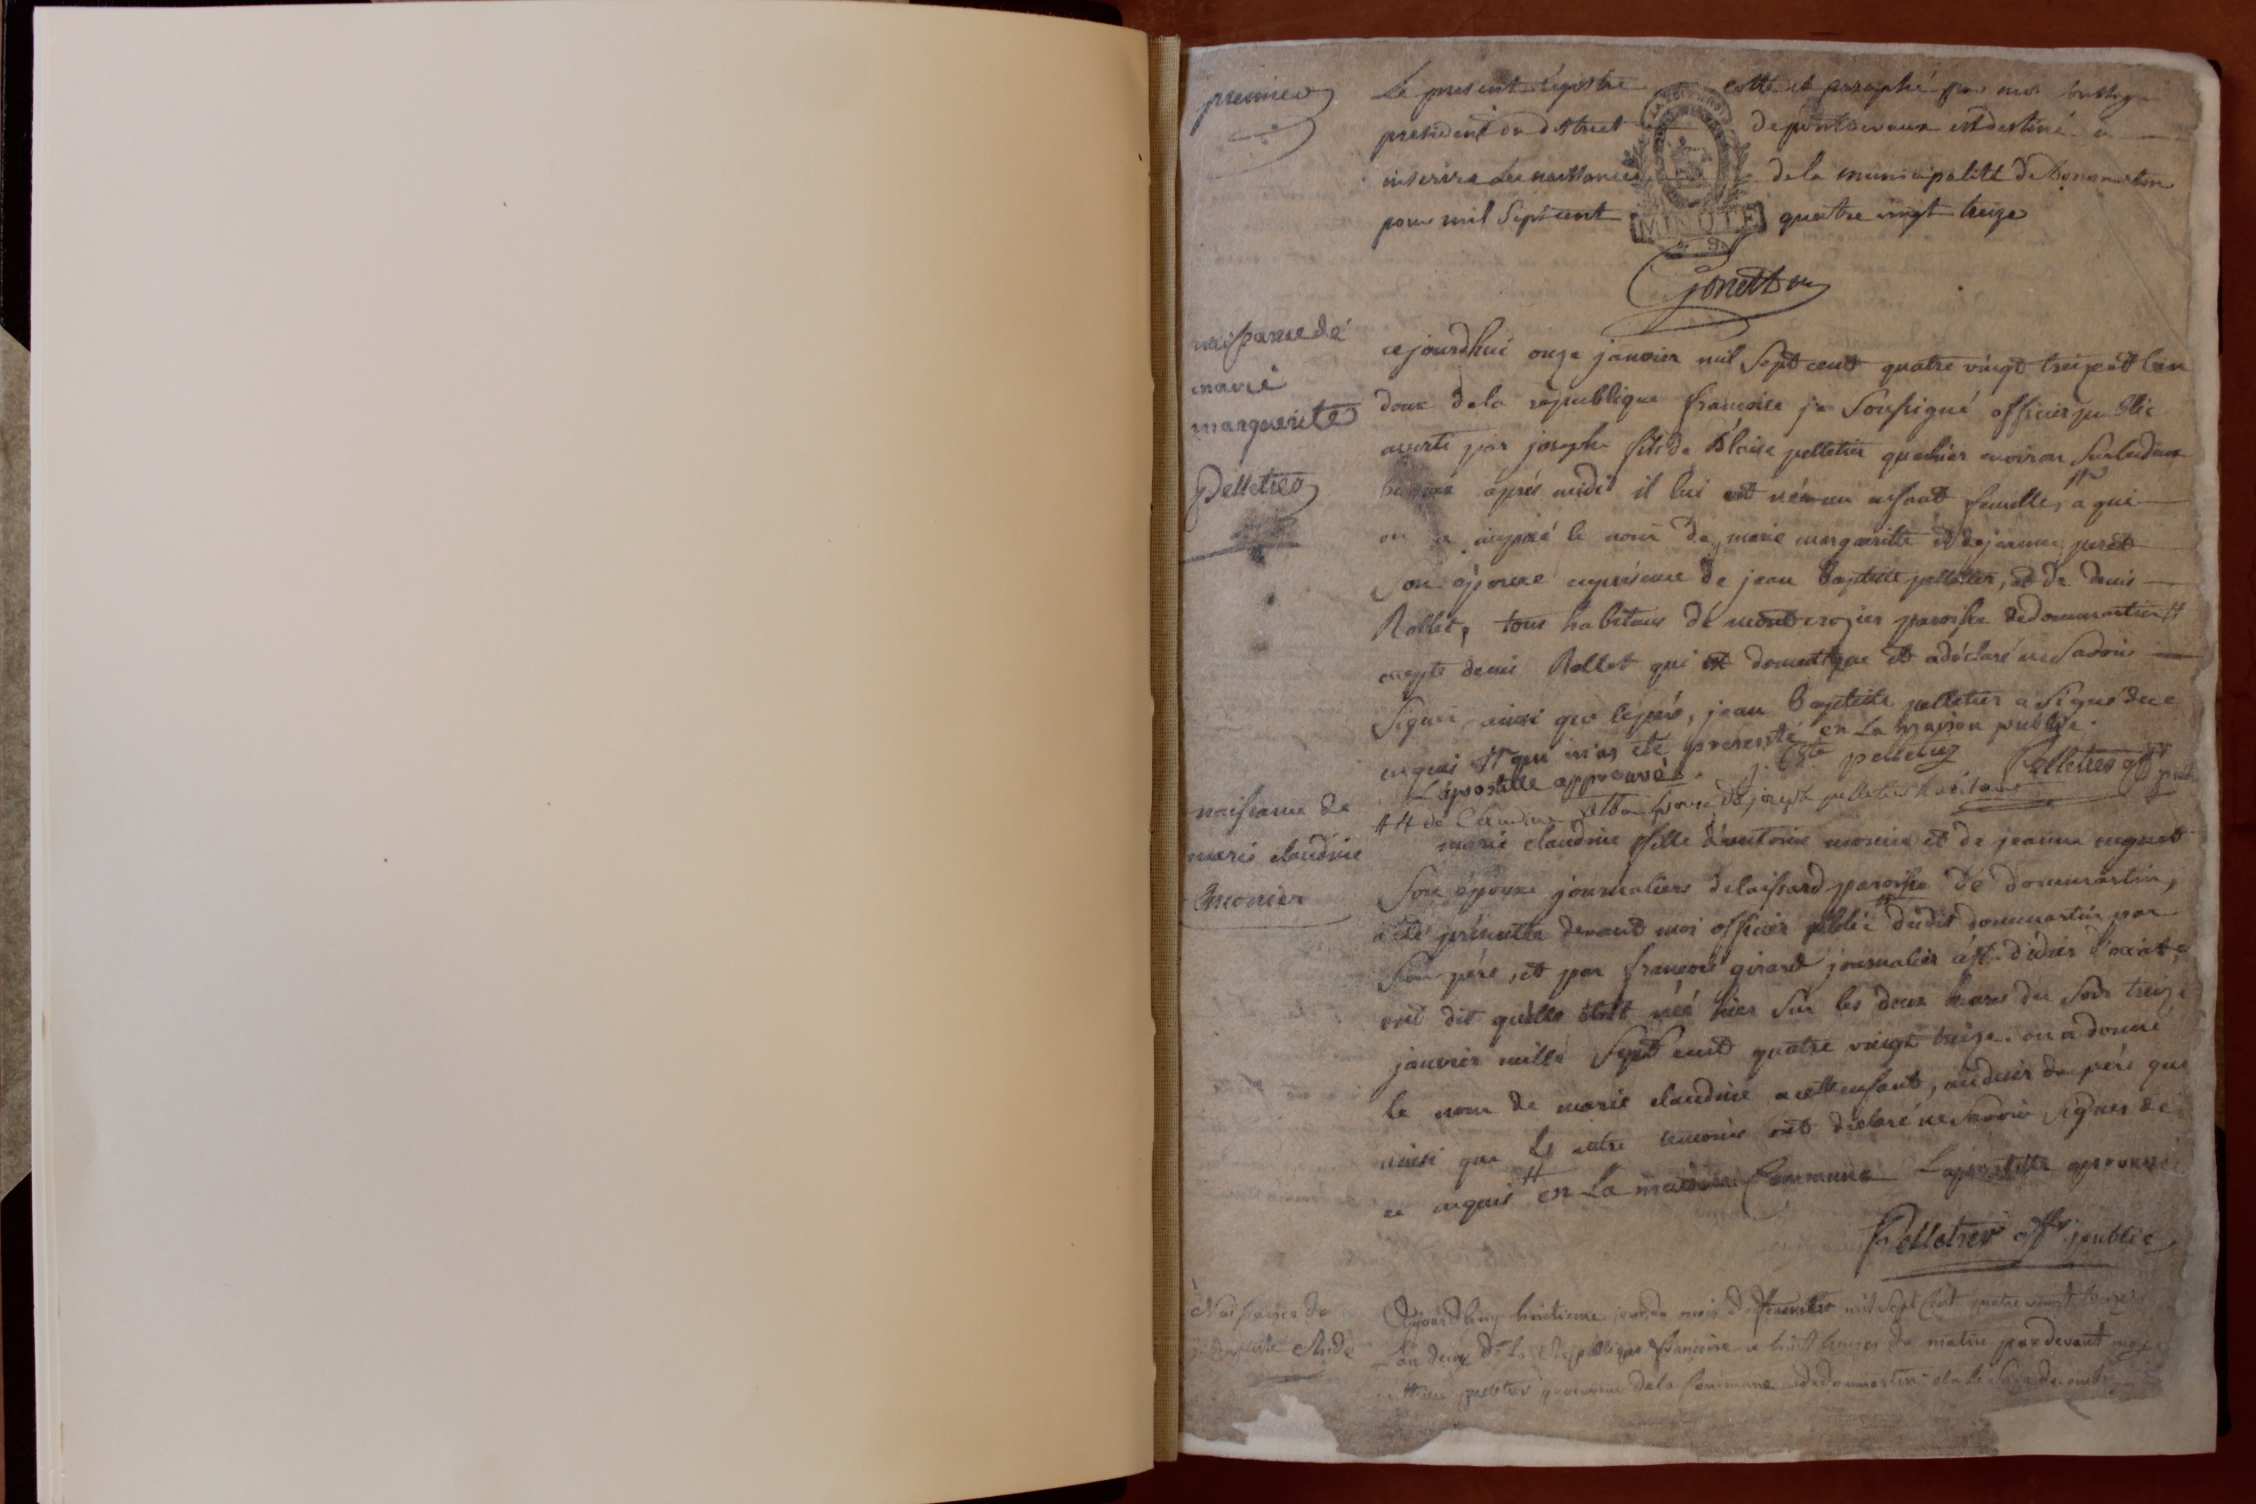 premier
Le present registre cotté et paraphé par moi
president du district de pontdevaux est destiné a
inscrire les naissances de la municipalité de Donmartin
pour mil Sept cent quatre vingt treize
MINUTE
naissance de
marie
marguerite
Pelletier
cejourdhui onze janvier mil Sept cent quatre vingt treize et l'an
deux de la republique francoise je Soussigné officier public
averti par joseph fils de Blaise pelletier quehier environ Sur les deux
heures après midi il lui est né un enfant femelle, a qui
on a imposé le nom de marie marguerite et de jeanne
Son épouse en présence de jean Baptiste pelletier, et de denis
Rollet, tous habitans de montcrozier paroisse de dommartin
excepté denis Rollet qui est domestique et a déclaré ne Savoir
Signer ainsi que le père, jean Baptiste pelletier a Signé de ce
enquis qui m'as été presenté en La maison publique.
L'apostille approuvé. J. Bte pelletier Pelletier
naissance de
marie claudine
monier
marie claudine fille d'antoine monier et de jeanne
Son épouse journaliers delaissard paroisse de dommartin,
a été présentée devant moi officier public dudit dommartin par
Son père, et par francois girard journalier
ont dit quelle étoit née hier Sur les deux heures du Soir treize
janvier mille Sept cent quatre vingt treize. on a donné
le nom de marie claudine a cette enfant, au désir du père qui
ainsi que les autre temoins ont déclaré ne Savoir Signer de
ce enquis en La maison Commune L'apostille approuvé
Pelletier offr public
Naissance de
Aujourdhuy huitieme jour du mois de fevrier mil Sept Cent quatre vingt treize
L'an deux de La Republique francoise a huit heures du matin pardevant moy
de la Commune de dommartin